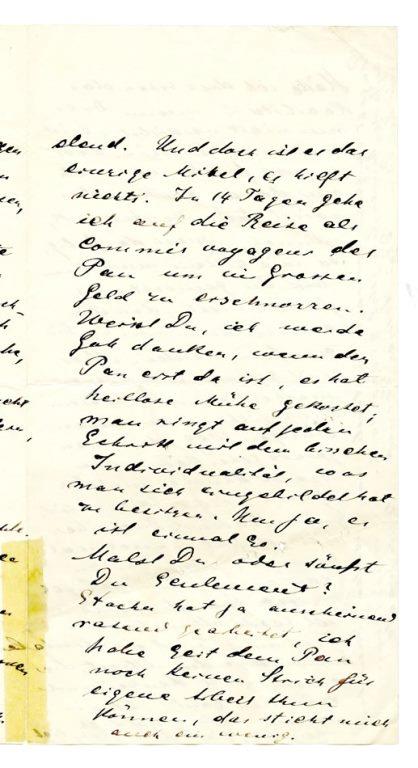 elend. Und doch ist es das
einzige Mittel, es hilft
nichts. In 14 Tagen gehe
ich auf die Reise als
Commis voyageur des
Pan um im Grossen
Geld zu erschnorren.
Weisst Du, ich werde
Gott danken, wenn der
Pan erst da ist, es hat
heillose Mühe gekostet;
man ringt auf jedem
Schritt mit dem bisschen
Individualität, was
man sich eingebildet hat
zu besitzen. Nun ja, es
ist einmal so.
Malst Du oder säufst
Du seulement?
hat ja anscheinend
rasend gearbeitet, ich
habe seit dem Pan
noch keinen Strich für
eigene Arbeit thun
können, das sticht mich
auch ein wenig.